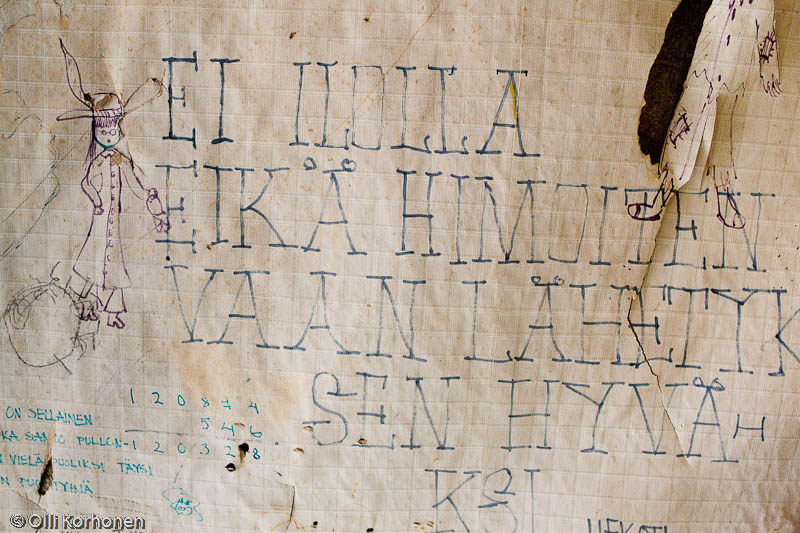 EI ILOLLA
EIKÄ HIMOITEN
VAAN LÄHETYK
SEN HYVÄ-
KSI
1 2 0 8 7 4
5 4 6
1 2 0 3 2 8
ON SELLAINEN
KA SANOO PULLON
VIELÄ PUOLIKSI TÄYSI
© Olli Korhonen